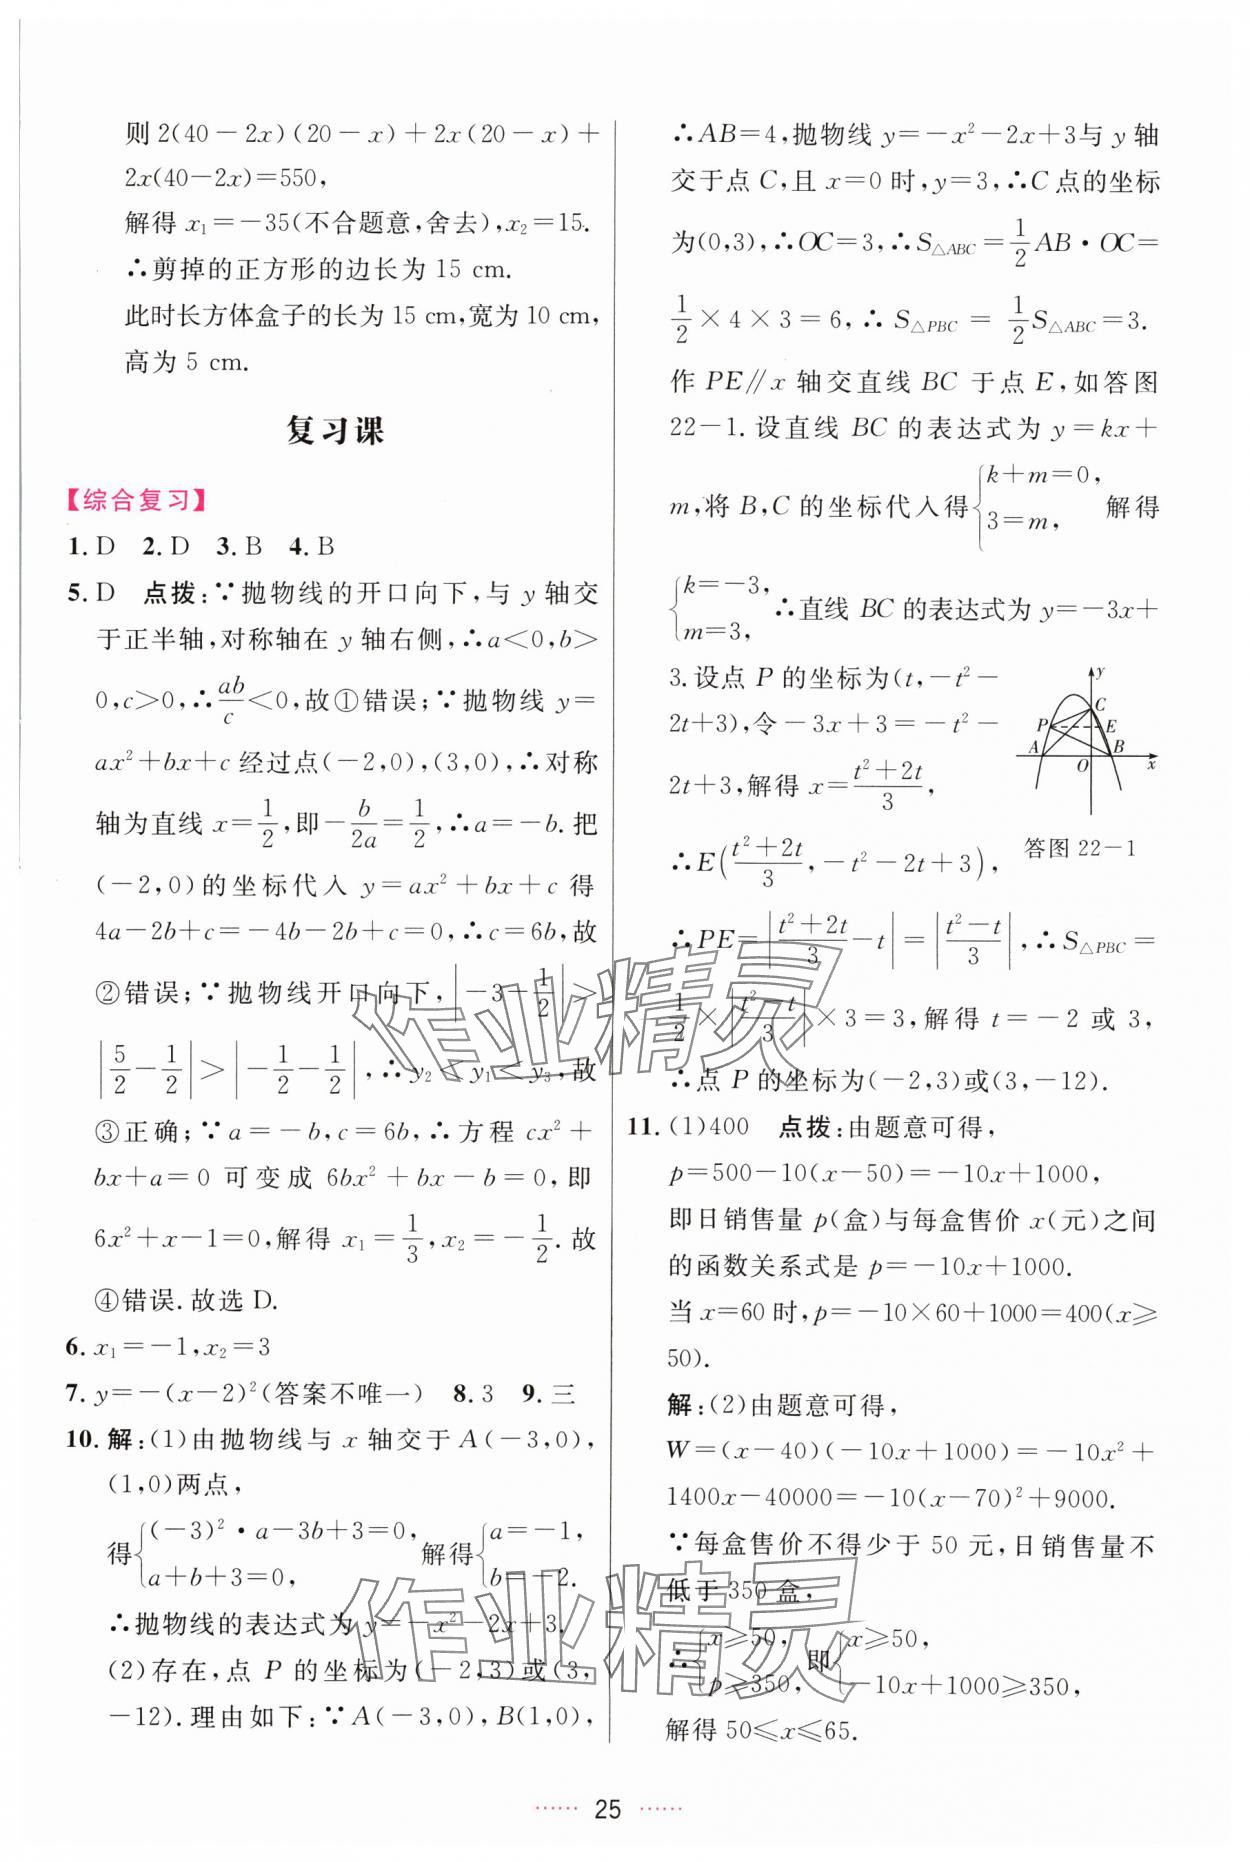 则 2(40－2x)(20－x)＋2x(20－x)＋
2x(40－2x)＝550,
解得 x₁＝－35(不合题意,舍去),x₂＝15.
∴剪掉的正方形的边长为 15 cm.
此时长方体盒子的长为 15 cm,宽为 10 cm,
高为 5 cm.
复习课
【综合复习】
1. D 2. D 3. B 4. B
5. D 点拨:∵抛物线的开口向下,与 y 轴交
于正半轴,对称轴在 y 轴右侧,∴a＜0,b＞
0,c＞0,∴ab/c＜0,故①错误;∵抛物线 y＝
ax²＋bx＋c 经过点(－2,0),(3,0),∴对称
轴为直线 x＝1/2,即－b/2a＝1/2,∴a＝－b.把
(－2,0)的坐标代入 y＝ax²＋bx＋c 得
4a－2b＋c＝－4b－2b＋c＝0,∴c＝6b,故
②错误;∵抛物线开口向下,|－3－1/2|＞
|5/2－1/2|＞|－1/2－1/2|,∴y₂＜y₁＜y₃,故
③正确;∵a＝－b,c＝6b,∴方程 cx²＋
bx＋a＝0 可变成 6bx²＋bx－b＝0,即
6x²＋x－1＝0,解得 x₁＝1/3,x₂＝－1/2.故
④错误.故选 D.
6. x₁＝－1,x₂＝3
7. y＝－(x－2)²(答案不唯一) 8. 3 9. 三
10. 解:(1)由抛物线与 x 轴交于 A(－3,0),
(1,0)两点,
得{(－3)²·a－3b＋3＝0, a＋b＋3＝0, 解得{a＝－1, b＝－2.
∴抛物线的表达式为 y＝－x²－2x＋3.
(2)存在,点 P 的坐标为(－2,3)或(3,
－12).理由如下:∵A(－3,0),B(1,0),
∴AB＝4,抛物线 y＝－x²－2x＋3与 y 轴
交于点 C,且 x＝0 时,y＝3,∴C 点的坐标
为(0,3),∴OC＝3,∴S△ABC＝1/2AB·OC＝
1/2×4×3＝6,∴S△PBC＝1/2S△ABC＝3.
作 PE∥x 轴交直线 BC 于点 E,如答图
22－1.设直线 BC 的表达式为 y＝kx＋
m,将 B,C 的坐标代入得{k＋m＝0, 3＝m, 解得
{k＝－3, m＝3, ∴直线 BC 的表达式为 y＝－3x＋
3.设点 P 的坐标为(t,－t²－
2t＋3),令－3x＋3＝－t²－
2t＋3,解得 x＝(t²＋2t)/3,
∴E((t²＋2t)/3,－t²－2t＋3),
y
C
P
E
A
B
O
x
答图 22－1
∴PE＝|(t²＋2t)/3－t|＝|(t²－t)/3|,∴S△PBC＝
1/2×|(t²－t)/3|×3＝3,解得 t＝－2 或 3,
∴点 P 的坐标为(－2,3)或(3,－12).
11. (1)400 点拨:由题意可得,
p＝500－10(x－50)＝－10x＋1000,
即日销售量 p(盒)与每盒售价 x(元)之间
的函数关系式是 p＝－10x＋1000.
当 x＝60 时,p＝－10×60＋1000＝400(x≥
50).
解:(2)由题意可得,
W＝(x－40)(－10x＋1000)＝－10x²＋
1400x－40000＝－10(x－70)²＋9000.
∵每盒售价不得少于 50 元,日销售量不
低于 350 盒,
∴{x≥50, p≥350, 即{x≥50, －10x＋1000≥350,
解得 50≤x≤65.
作业精灵
作业精灵
25